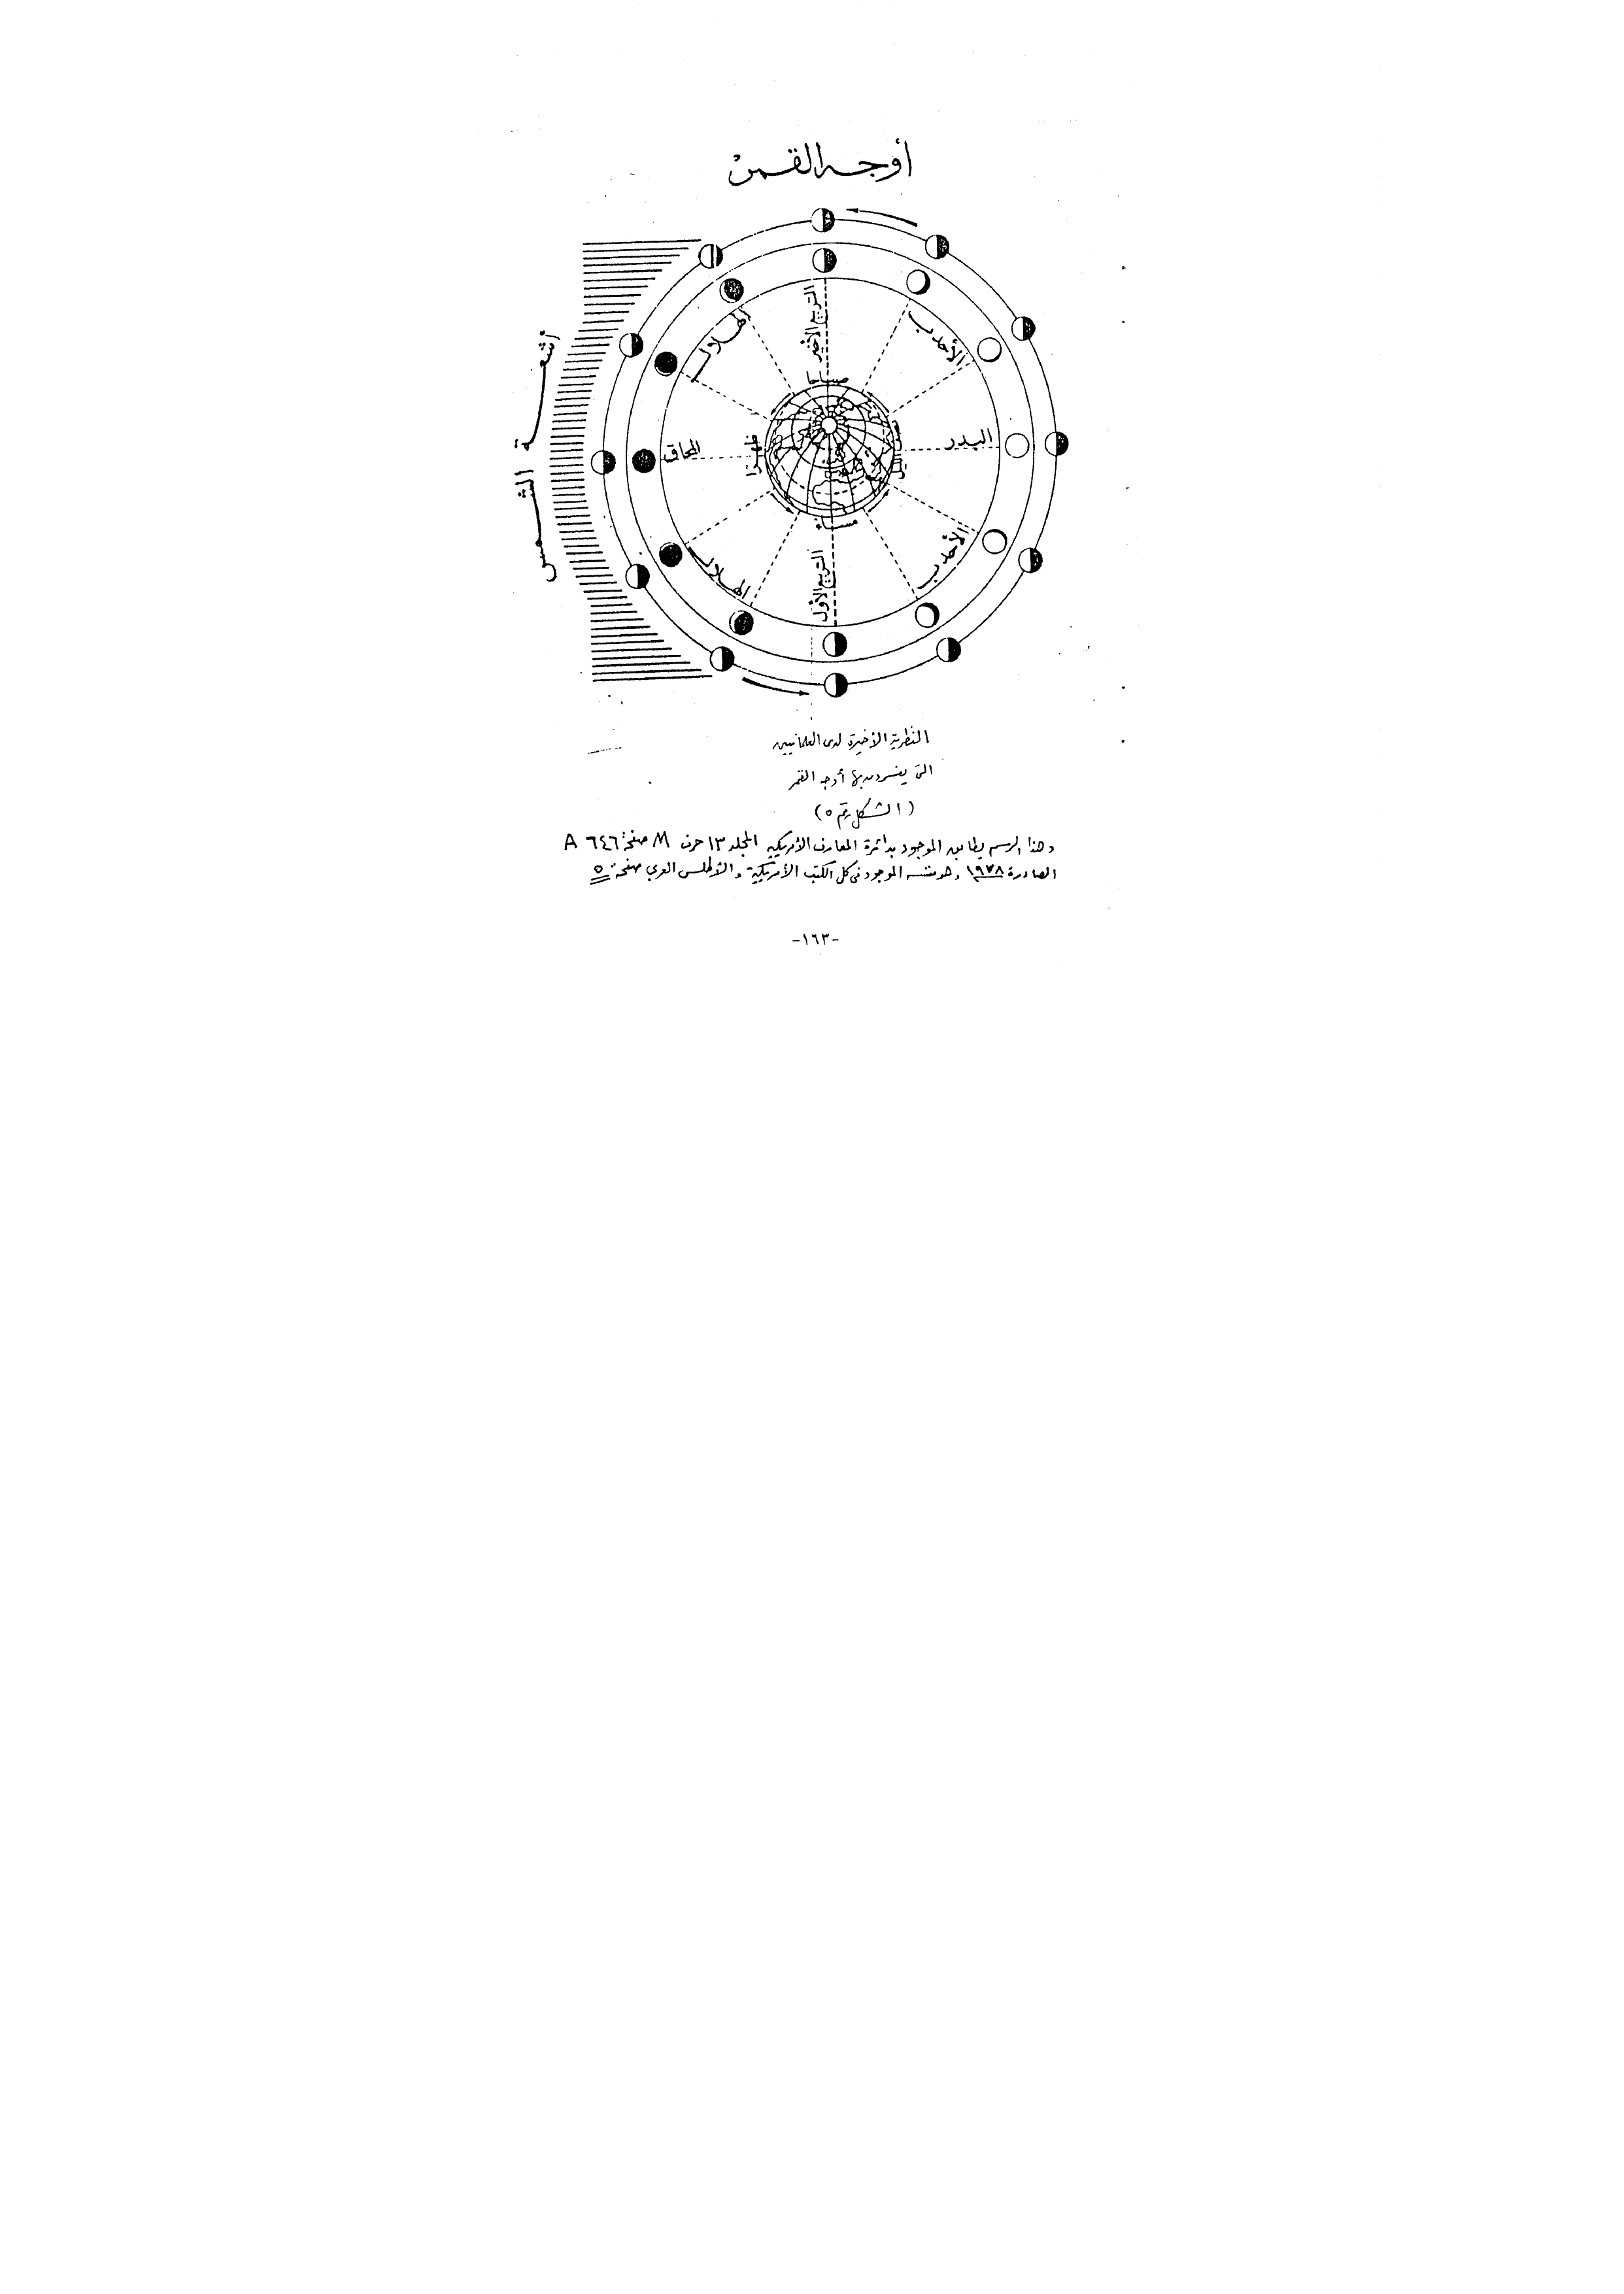 أوجه القمر
أشعة الشمس
التربيع الأخير
الأحدب
الهلال
صباحا
البدر
المحاق
ظهرا
مساء
الهلال
التربيع الأول
الأحدب
النظرية الأخيرة لدى العلمانيين
التى يفسرون بها أوجه القمر
(الشكل رقم ٥)
وهذا الرسم يطابق الموجود بدائرة المعارف الأمريكية المجلد ١٣ حرف M صفحة ٦٤٦ A
الصادرة ١٩٧٨ وهو نفسه الموجود فى كل الكتب الأمريكية والأطلس العربي صفحة ٥
-١٦٣-